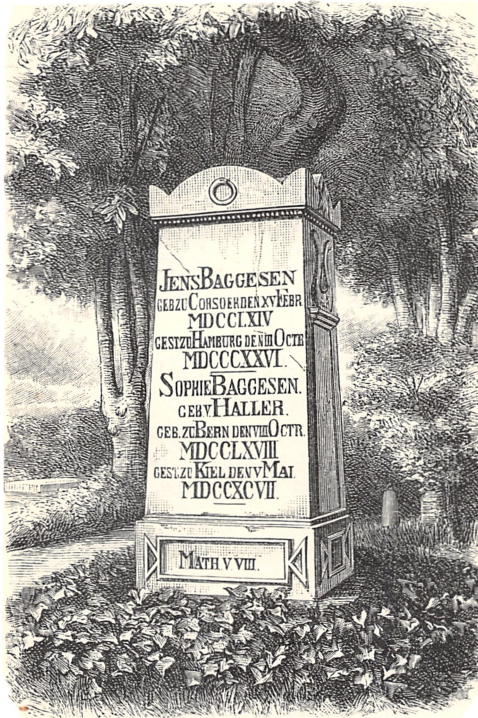 JENS BAGGESEN
GEB ZU CORSOER DEN XV FEBR
MDCCLXIV
GEST ZU HAMBURG DEN III OCTB
MDCCCXXVI.
SOPHIE BAGGESEN.
GEB V HALLER.
GEB. ZU BERN DEN VIII OCTR.
MDCCLXVIII
GEST. ZU KIEL DEN V MAI.
MDCCXCVII.
MATH V VIII.